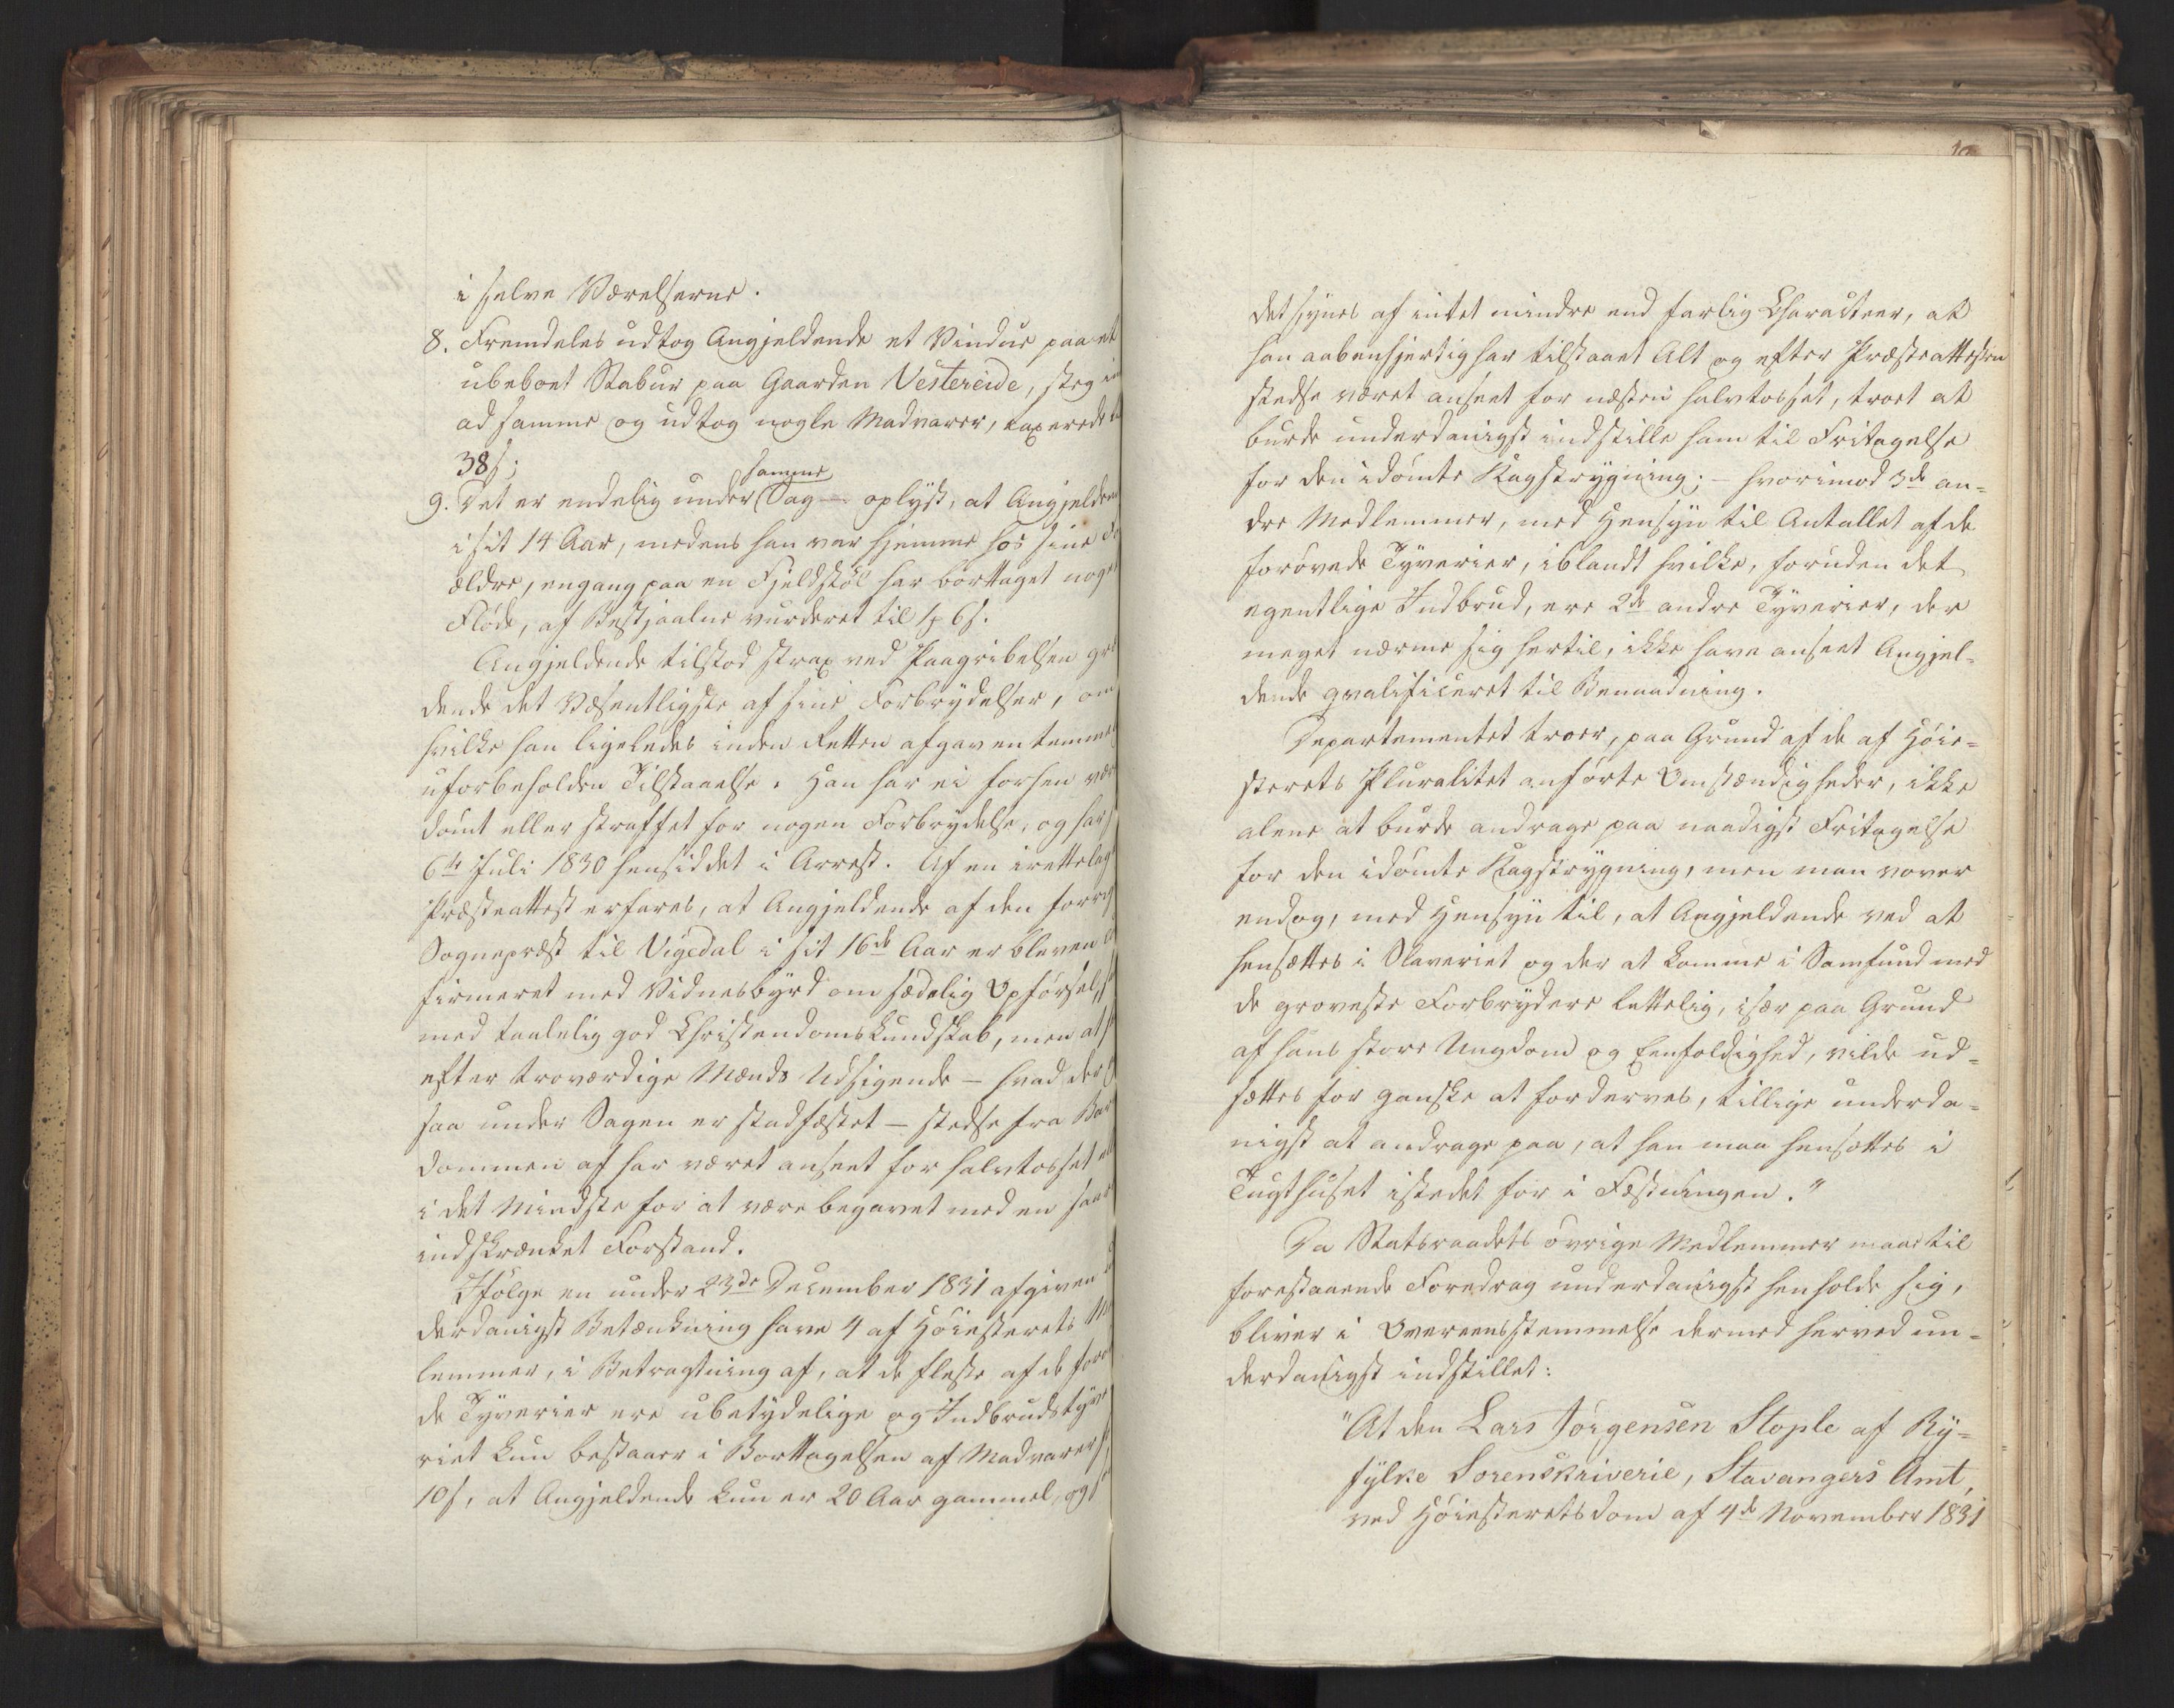 i selve Værelserne.
8. Fremdeles udtog Angjeldende et Vindue paa et
ubeboet Stabur paa Gaarden Vestereide, steg in
ad samme og udtog nogle Madvarer, taxerede t
38 s;
samme
9. Det er endelig under Sag oplyst, at Angjelden
i sit 14 Aar, medens han var hjemme hos sine Fo
ældre, engang paa en Fjeldstöl har borttaget nog
Flöde, af Bestjaalne vurderet til 6 s.
Angjeldende tilstod strax ved Paagribelsen gr
dende det Væsentligste af sine Forbrydelser, om
hvilke han ligeledes inden Retten afgav en temme
uforbeholden Tilstaaelse. Han har ei forhen vær
dömt eller straffet for nogen Forbrydelse, og har
6te Juli 1830 hensiddet i Arrest. Af en irettelag
Præsteattest erfares, at Angjeldende af den forri
Sognepræst til Vigedal i sit 16de Aar er bleven co
firmeret med Vidnesbyrd om sædelig Opförsel,
med taalelig god Christendomskundskab, men at
efter troværdige Mænds Udsigende – hvad der
saa under Sagen er stadfæstet – stedse fra Bar
dommen af har været anseet for halvtosset
i det Mindste for at være begavet med en saa
indskrænket Forstand.
Ifölge en under 23de December 1831 afgiven
derdanigst Betænkning have 4 af Höiesterets M
lemmer, i Betragtning af, at de fleste af de for
de Tyverier ere ubetydelige og Indbrudstyve
riet kun bestaaer i Borttagelsen af Madvarer
10 s, at Angjeldende kun er 20 Aar gammel, og
det synes af intet mindre end farlig Characteer, at
han aabenhjertig har tilstaaet Alt og efter Præsteattesten
stedse været anseet for næsten halvtosset, troet at
burde underdanigst indstille ham til Fritagelse
for den idömte Kagstrygning; – hvorimod 3de an-
dre Medlemmer, med Hensyn til Antallet af de
forövede Tyverier, iblandt hvilke, foruden det
egentlige Indbrud, ere 2de andre Tyverier, der
meget nærme sig hertil, ikke have anseet Angjel-
dende qvalificeret til Benaadning.
Departementet troer, paa Grund af de af Höie-
sterets Pluralitet anförte Omstændigheder, ikke
alene at burde andrage paa naadigst Fritagelse
for den idömte Kagstrygning, men man vover
endog, med Hensyn til, at Angjeldende ved at
hensættes i Slaveriet og der at komme i Samfund med
de groveste Forbrydere lettelig, især paa Grund
af hans store Ungdom og Eenfoldighed, vilde ud-
sættes for ganske at fordærves, tillige underda-
nigst at andrage paa, at han maa hensættes i
Tugthuset istedet for i Fæstningen."
Da Statsraadets övrige Medlemmer maae til
forestaaende Foredrag underdanigst henholde sig,
bliver i Overeensstemmelse dermed herved un-
derdanigst indstillet:
"At den Lars Jörgensen Stople af Ry-
fylke Sorenskriverie, Stavangers Amt,
ved Höiesteretsdom af 4de November 1831